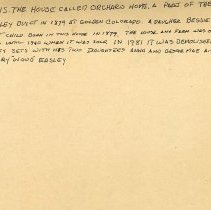 IS THE HOUSE CALLED ORCHARD HOME, A PART OF THE
LEY BUILT IN 1879 AT GOLDEN COLORADO. A DAUGHTER BESSIE
T CHILD BORN IN THIS HOME IN 1879. THE HOUSE AND FARM WAS
UNTIL 1960 WHEN IT WAS SOLD IN 1981 IT WAS DEMOLISHED
EY SITS WITH HIS TWO DAUGHTERS ANNA AND BESSIE MAE A
RY WOOD EASLEY